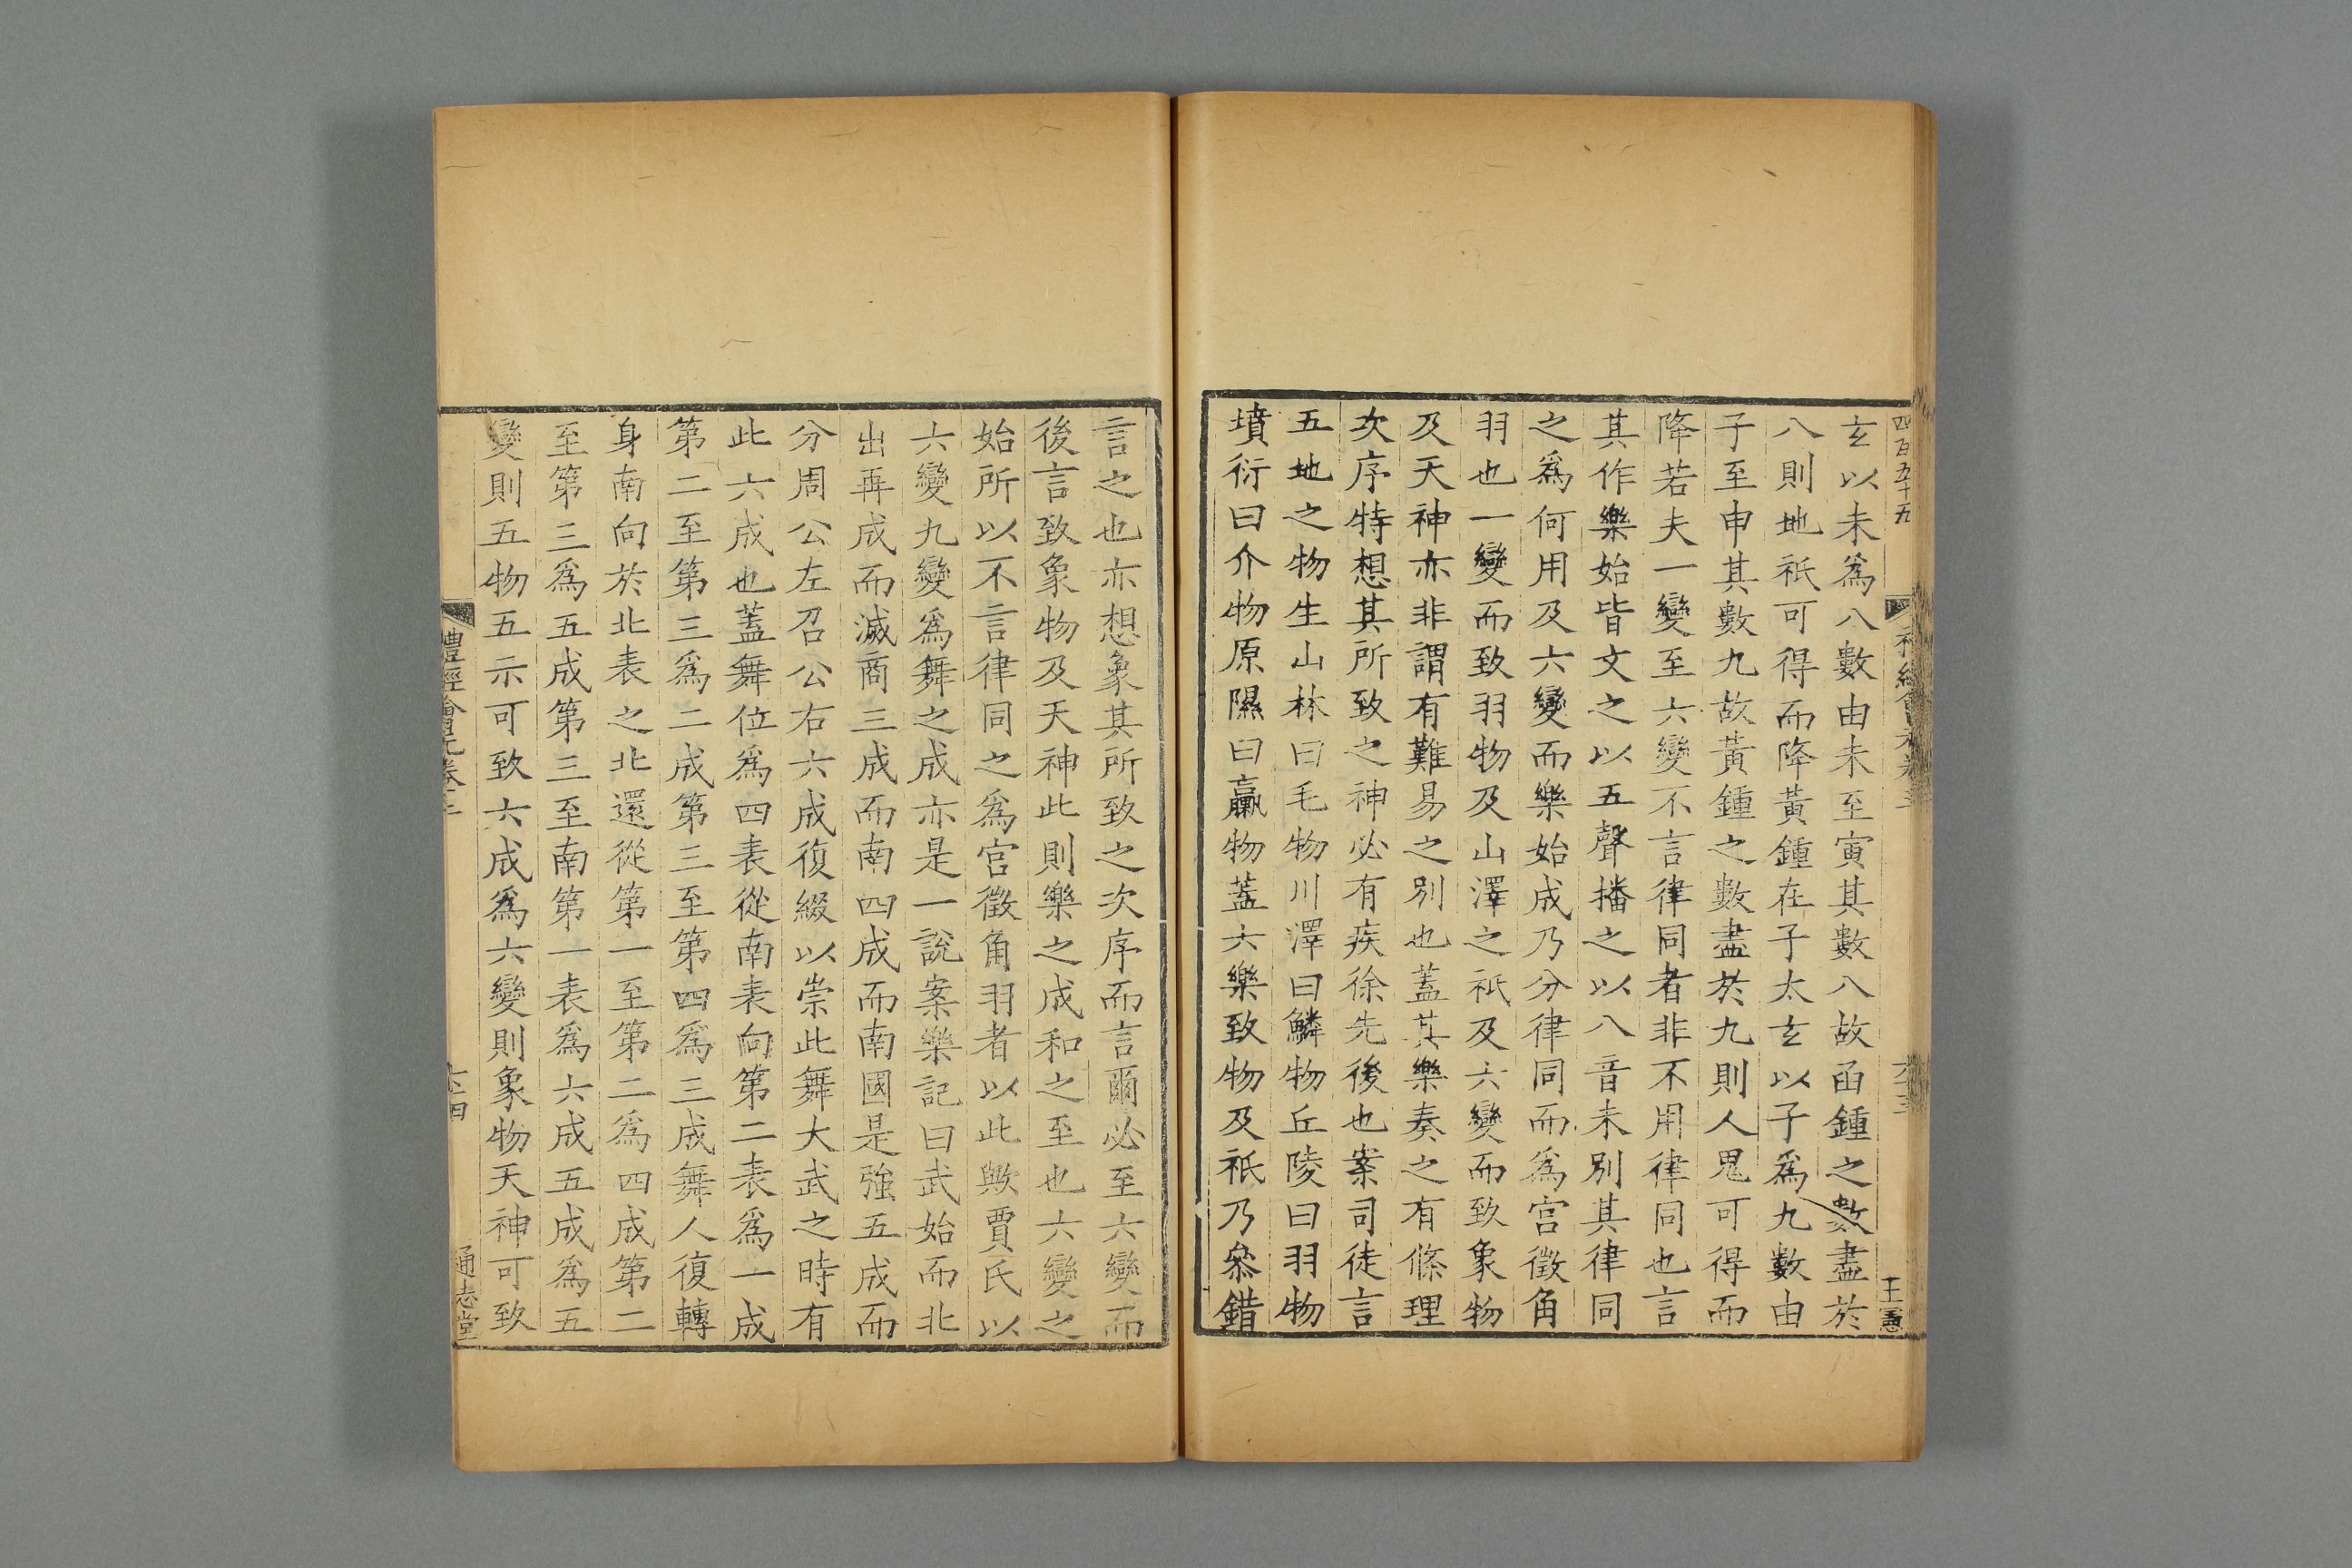 四百五十五
王憲
玄以未爲八數由未至寅其數八故函鍾之數盡於
八則地祇可得而降黃鍾在子太玄以子爲九數由
子至申其數九故黃鍾之數盡於九則人鬼可得而
降若夫一變至六變不言律同者非不用律同也言
其作樂始皆文之以五聲播之以八音未別其律同
之爲何用及六變而樂始成乃分律同而爲宮徵角
羽也一變而致羽物及山澤之祇及六變而致象物
及天神亦非謂有難易之別也蓋其樂奏之有條理
次序特想其所致之神必有疾徐先後也案司徒言
五地之物生山林曰毛物川澤曰鱗物丘陵曰羽物
墳衍曰介物原隰曰臝物蓋大樂致物及祇乃叅錯
言之也亦想象其所致之次序而言爾必至六變而
後言致象物及天神此則樂之成和之至也六變之
始所以不言律同之爲宮徵角羽者以此歟賈氏以
六變九變爲舞之成亦是一說案樂記曰武始而北
出再成而滅商三成而南四成而南國是強五成而
分周公左召公右六成復綴以崇此舞大武之時有
此六成也蓋舞位爲四表從南表向第二表爲一成
第二至第三爲二成第三至第四爲三成舞人復轉
身南向於北表之北還從第一至第二爲四成第二
至第三爲五成第三至南第一表爲六成五成爲五
變則五物五示可致六成爲六變則象物天神可致
禮經會元卷三
六四
通志堂